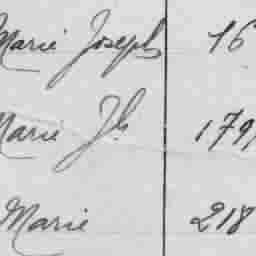 Marie Joseph 16
Marie Jh 179
Marie 218